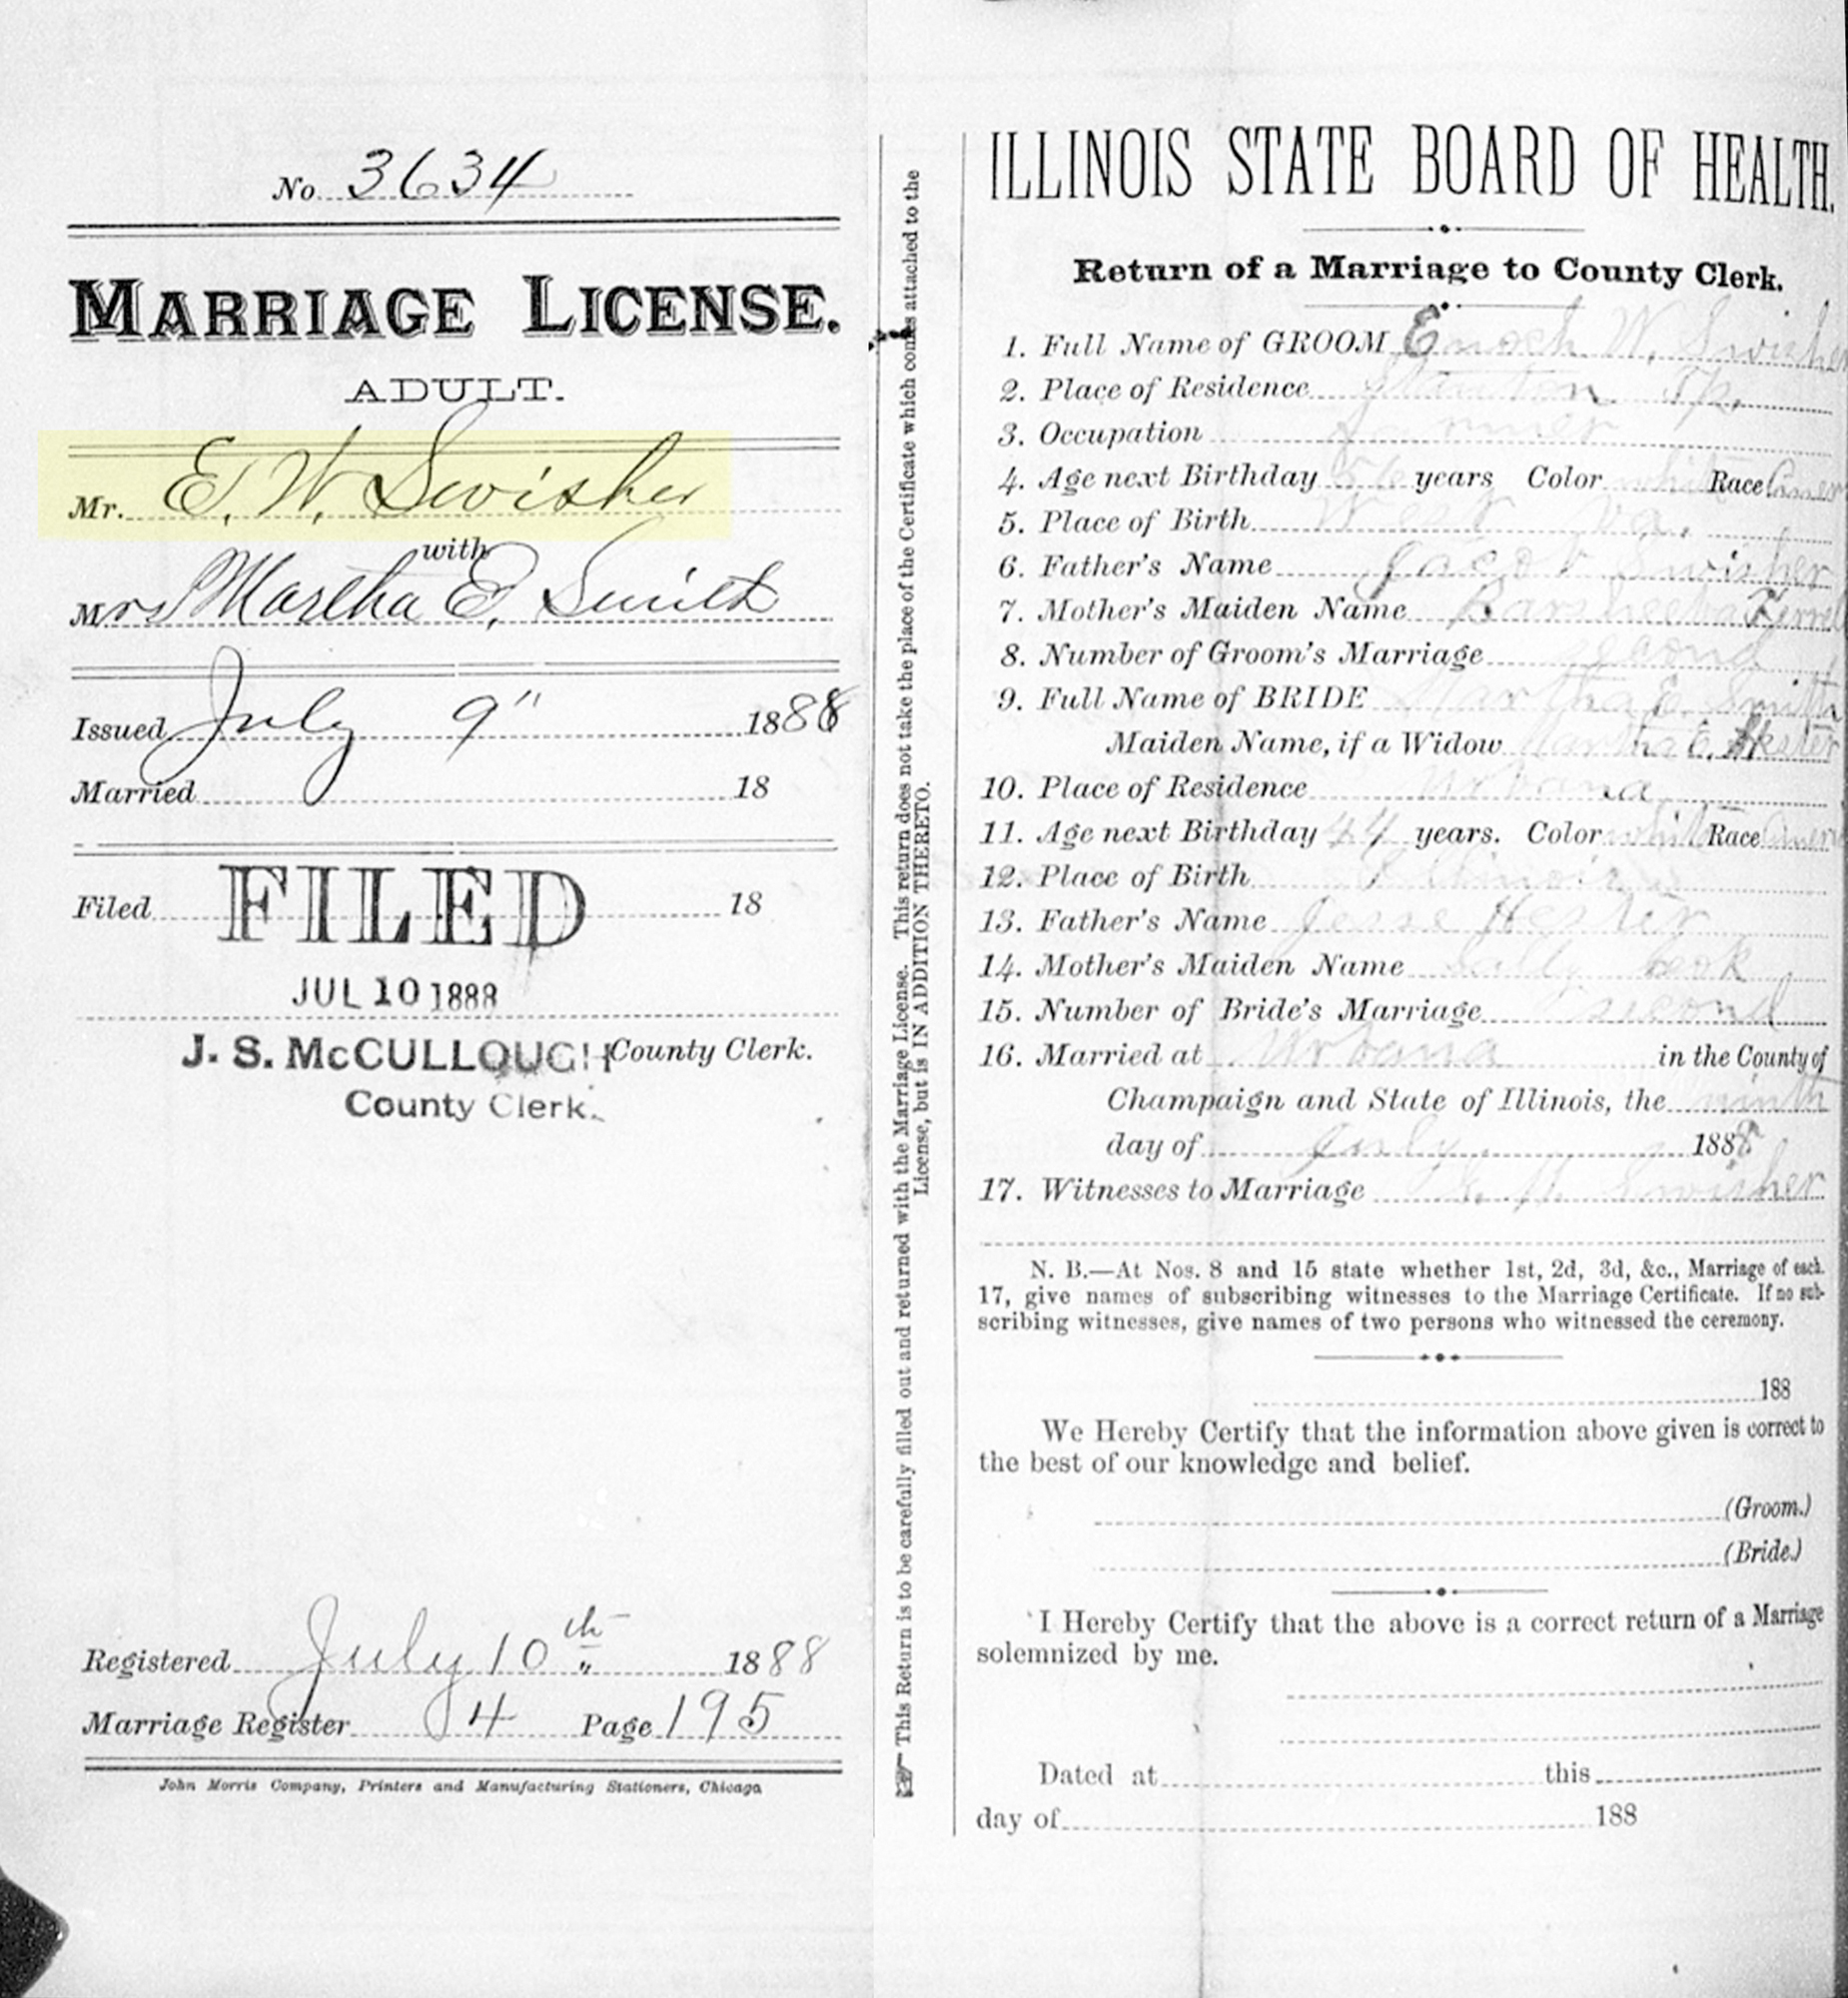 No. 3634
MARRIAGE LICENSE.
ADULT.
Mr. E. W. Swisher
with
Mrs Martha E. Smith
Issued July 9" 1888
Married 18
Filed FILED 18
JUL 10 1888
J. S. McCULLOUGH County Clerk.
County Clerk.
Registered July 10th 1888
Marriage Register 4 Page 195
John Morris Company, Printers and Manufacturing Stationers, Chicago
This Return is to be carefully filled out and returned with the Marriage License. This return does not take the place of the Certificate which comes attached to the
License, but is IN ADDITION THERETO.
ILLINOIS STATE BOARD OF HEALTH.
Return of a Marriage to County Clerk.
1. Full Name of GROOM Enoch W. Swisher
2. Place of Residence Stanton Tp.
3. Occupation farmer
4. Age next Birthday 56 years Color white Race Amer
5. Place of Birth West Va.
6. Father's Name Jacob Swisher
7. Mother's Maiden Name
8. Number of Groom's Marriage second
9. Full Name of BRIDE Martha E. Smith
Maiden Name, if a Widow Martha E.
10. Place of Residence Urbana
11. Age next Birthday 44 years. Color white Race Amer
12. Place of Birth Illinois
13. Father's Name Jesse Hester
14. Mother's Maiden Name Sally Cook
15. Number of Bride's Marriage second
16. Married at Urbana in the County of
Champaign and State of Illinois, the ninth
day of July 1888
17. Witnesses to Marriage Swisher
N. B.—At Nos. 8 and 15 state whether 1st, 2d, 3d, &c., Marriage of each.
17, give names of subscribing witnesses to the Marriage Certificate. If no sub-
scribing witnesses, give names of two persons who witnessed the ceremony.
188
We Hereby Certify that the information above given is correct to
the best of our knowledge and belief.
(Groom.)
(Bride.)
I Hereby Certify that the above is a correct return of a Marriage
solemnized by me.
Dated at this
day of 188